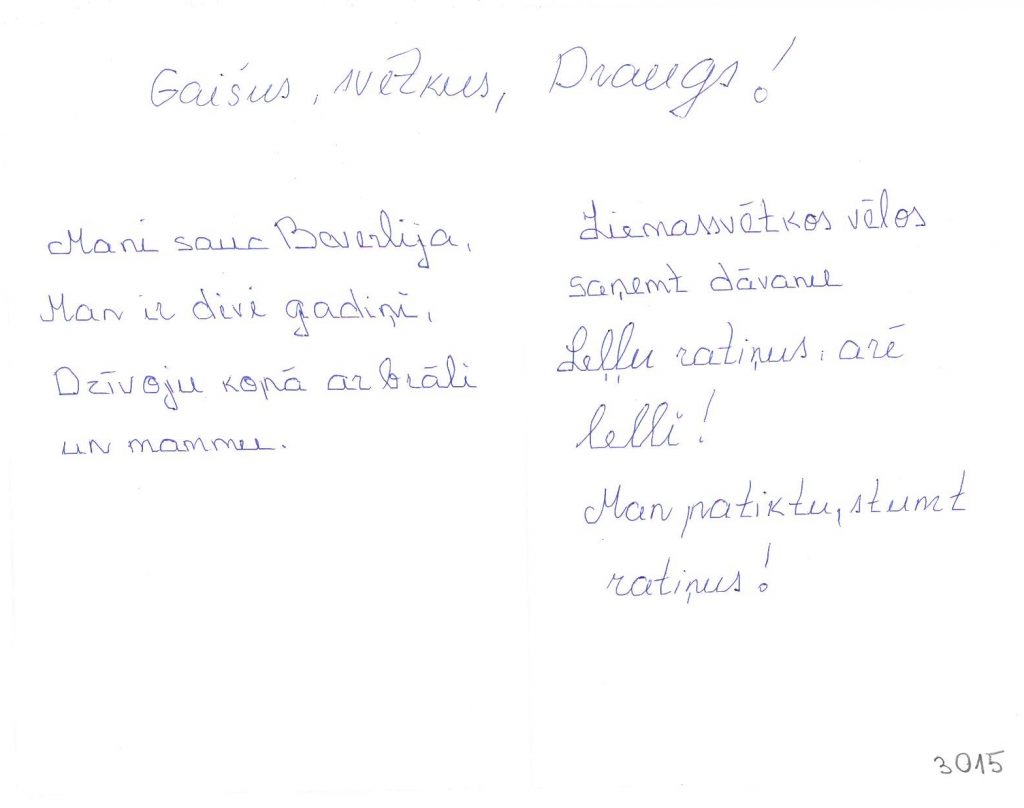 Gaišus, svētkus, Draugs!
Mani sauc Beverlija,
Man ir divi gadiņi,
Dzīvoju kopā ar brāli
un mammu.
Ziemassvētkos vēlos
saņemt dāvanu
Leļļu ratiņus, arē
lelli!
Man patiktu, stumt
ratiņus!
3015